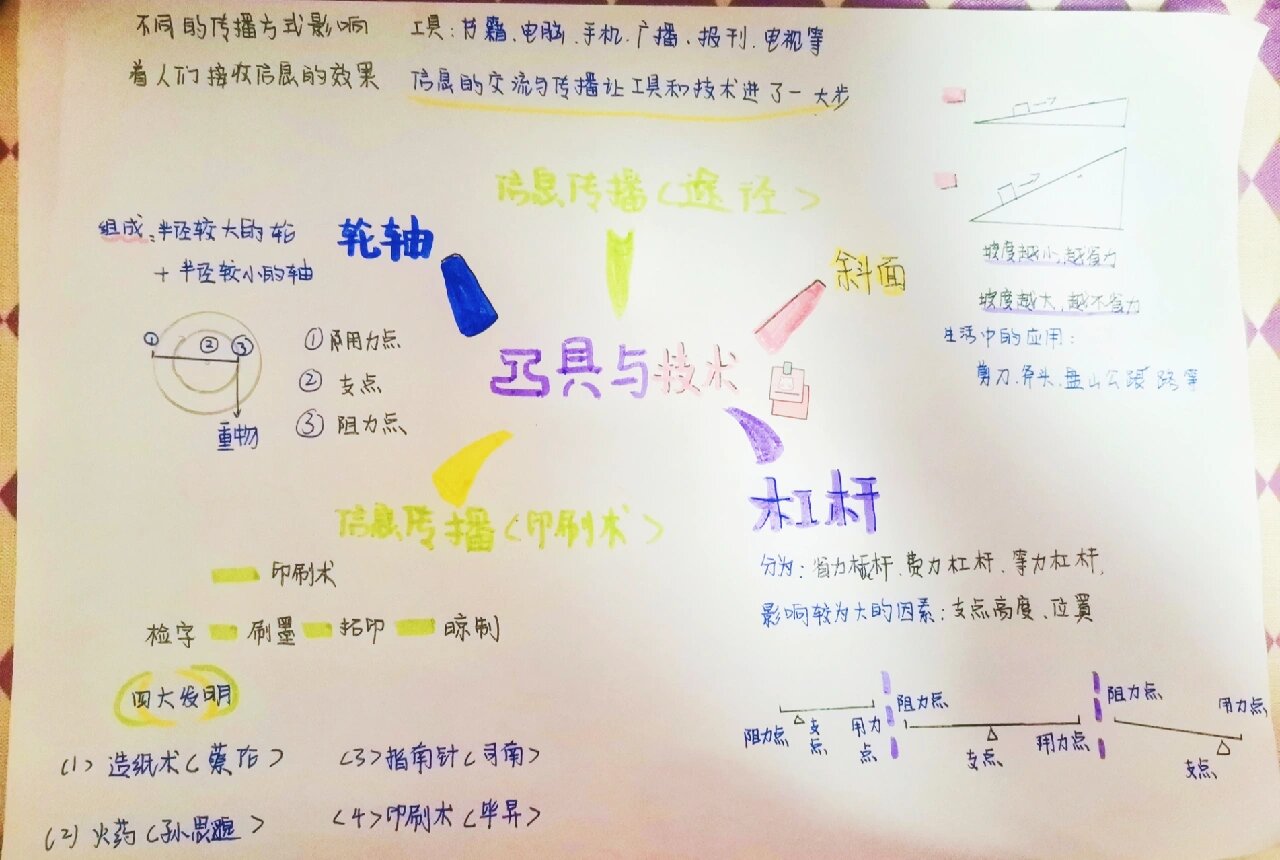 不同的传播方式影响
着人们接收信息的效果
工具:书籍、电脑、手机、广播、报刊、电视等
信息的交流与传播让工具和技术进了一大步
信息传播(途径)
轮轴
组成:半径较大的轮
+半径较小的轴
① ② ③
重物
①用力点
② 支点
③ 阻力点
斜面
坡度越小,越省力
坡度越大,越不省力
生活中的应用:
剪刀、斧头、盘山公路等
工具与技术
信息传播(印刷术)
印刷术
检字 刷墨 拓印 晾制
四大发明
(1)造纸术(蔡伦)
(2)火药(孙思邈)
(3)指南针(司南)
(4)印刷术(毕昇)
杠杆
分为:省力杠杆、费力杠杆、等力杠杆,
影响较为大的因素:支点高度、位置
阻力点 支点 用力点
阻力点 支点 用力点
阻力点 支点 用力点